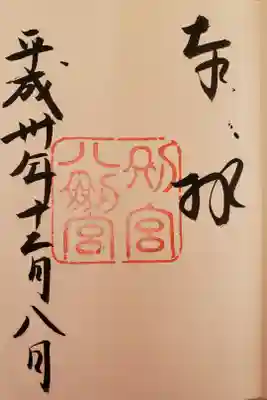 奉拝
別宮
八剣宮
平成卅年十二月八日